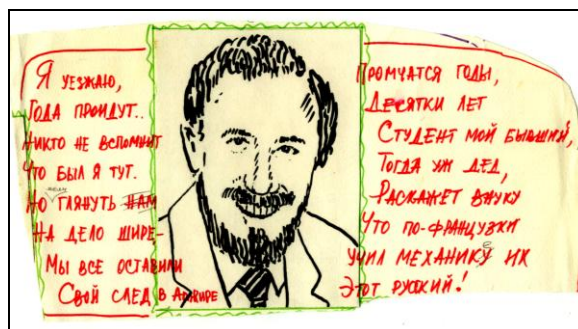 Я УЕЗЖАЮ,
ГОДА ПРОЙДУТ..
НИКТО НЕ ВСПОМНИТ
ЧТО БЫЛ Я ТУТ.
НО ГЛЯНУТЬ НАМ
НА ДЕЛО ШИРЕ-
МЫ ВСЕ ОСТАВИЛИ
СВОЙ СЛЕД В АЛЖИРЕ
ПРОМЧАТСЯ ГОДЫ,
ДЕСЯТКИ ЛЕТ
СТУДЕНТ МОЙ БЫВШИЙ,
ТОГДА УЖ ДЕД,
РАСКАЖЕТ ВНУКУ
ЧТО ПО-ФРАНЦУЗКИ
УЧИЛ МЕХАНИКЕ ИХ
ЭТОТ РУССКИЙ!